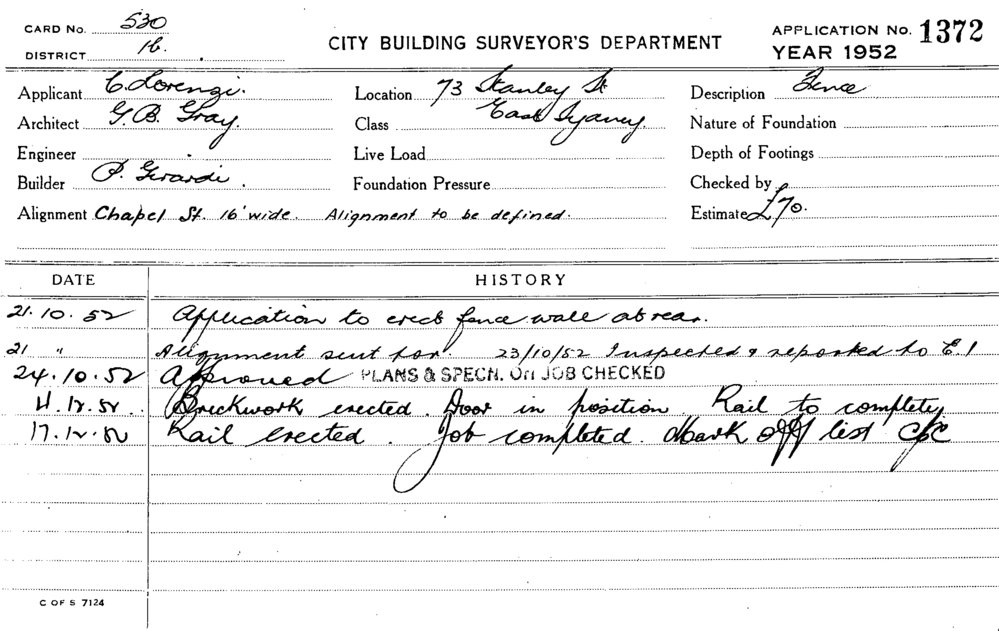 CARD No. 530
DISTRICT 16.
CITY BUILDING SURVEYOR'S DEPARTMENT
APPLICATION No. 1372
YEAR 1952
Applicant C. Lorenzi. Location 73 Stanley St Description Fence
Architect G. B. Gray. Class East Sydney. Nature of Foundation
Engineer Live Load Depth of Footings
Builder P. Girardi. Foundation Pressure Checked by
Alignment Chapel St. 16' wide. Alignment to be defined. Estimate £70.
DATE HISTORY
21.10.52 Application to erect fence wall at rear.
21 " Alignment sent for. 23/10/52 Inspected & reported to C.I
24.10.52 Approved PLANS & SPECN. ON JOB CHECKED
4.12.52. Brickwork erected. Door in position. Rail to complete
17.12.52 Rail erected. Job completed. Mark off list
C OF S 7124